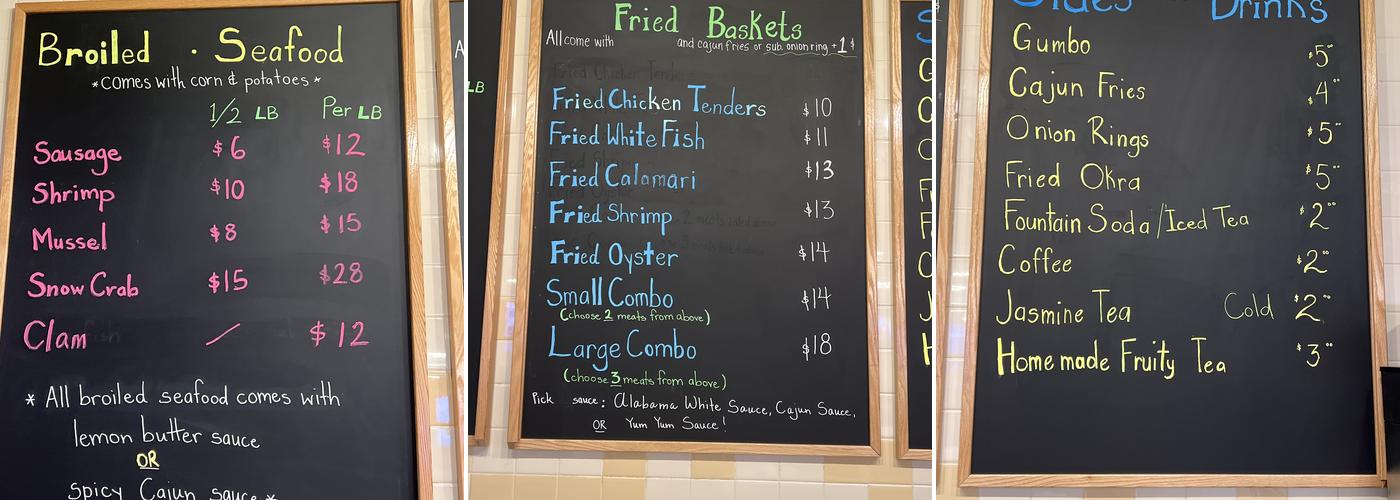 Broiled · Seafood
*comes with corn & potatoes*
1/2 LB Per LB
Sausage $6 $12
Shrimp $10 $18
Mussel $8 $15
Snow Crab $15 $28
Clam / $12
* All broiled seafood comes with
lemon butter sauce
OR
spicy Cajun sauce *
LB
Fried Baskets
All come with and cajun fries or sub. onion ring +1$
Fried Chicken Tenders $10
Fried White Fish $11
Fried Calamari $13
Fried Shrimp $13
Fried Oyster $14
Small Combo $14
(choose 2 meats from above)
Large Combo $18
(choose 3 meats from above)
Pick sauce: Alabama White Sauce, Cajun Sauce,
OR Yum Yum Sauce!
Sides Drinks
Gumbo $5
Cajun Fries $4
Onion Rings $5
Fried Okra $5
Fountain Soda/Iced Tea $2
Coffee $2
Jasmine Tea Cold $2
Homemade Fruity Tea $3